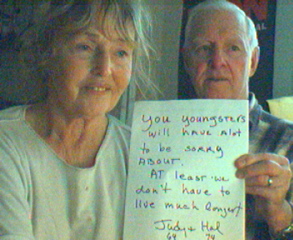 You youngsters
will have alot
to be sorry
ABOUT.
AT least we
don't have to
live much longer!
Judy + Hal
64 74